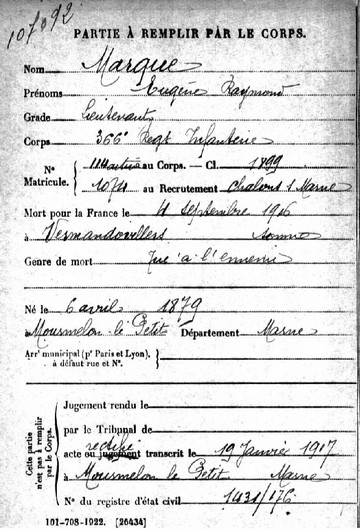 107092
PARTIE À REMPLIR PAR LE CORPS.
Nom Marque
Prénoms Eugène Raymond
Grade Lieutenant
Corps 366e Regt Infanterie
N° Matricule. { au Corps. — Cl. 1899
1074 au Recrutement Chalons s/ Marne
Mort pour la France le 4 septembre 1916
à Vermandovillers Somme
Genre de mort Tué à l'ennemi
Né le 6 avril 1879
à Mourmelon le Petit Département Marne
Arrt municipal (pr Paris et Lyon), à défaut rue et N°. }
Cette partie n'est pas à remplir par le Corps.
Jugement rendu le
par le Tribunal de
acte ou jugement transcrit le 19 Janvier 1917
à Mourmelon le Petit Marne
N° du registre d'état civil 1431/176
101-708-1922. [26434]